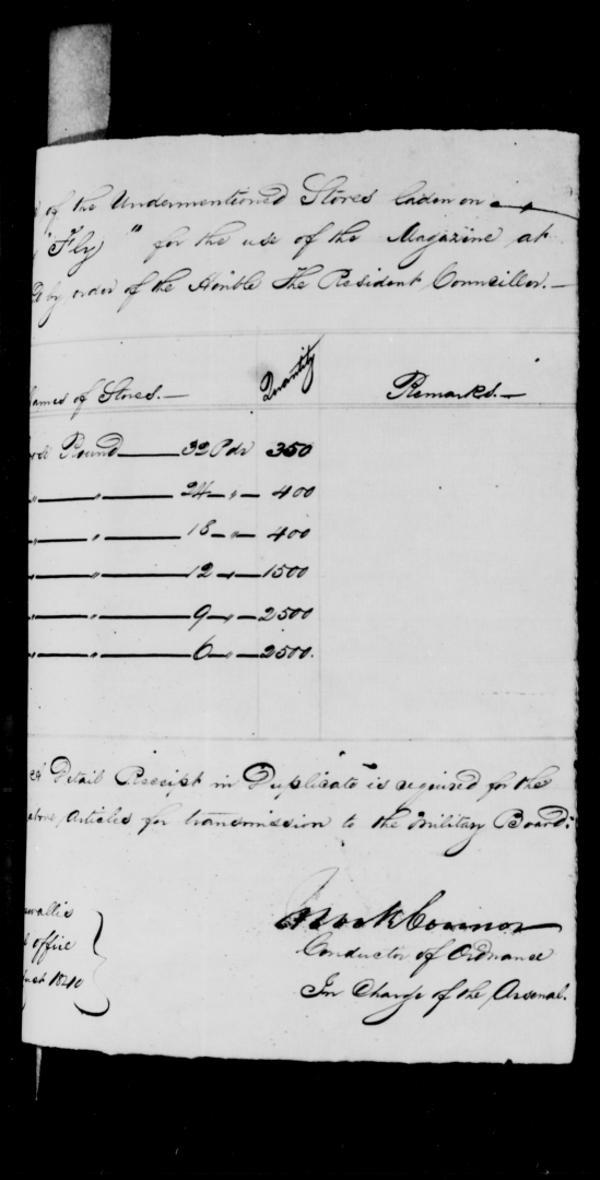 of the Undermentioned Stores laden on
"Fly" for the use of the Magazine at
by order of the Honble The Resident Councillor.—
Names of Stores.— Quantity Remarks.—
Round — 32 Pdr 350
„ — „ — 24 — „ — 400
„ — „ — 18 — „ — 400
„ — „ — 12 — „ — 1500
„ — „ — 9 — „ — 2500
„ — „ — 6 — „ — 2500.
Detail Receipt in Duplicate is required for the
above Articles for transmission to the Military Board.
wallis
office
1840
Conductor of Ordnance
In Charge of the Arsenal.